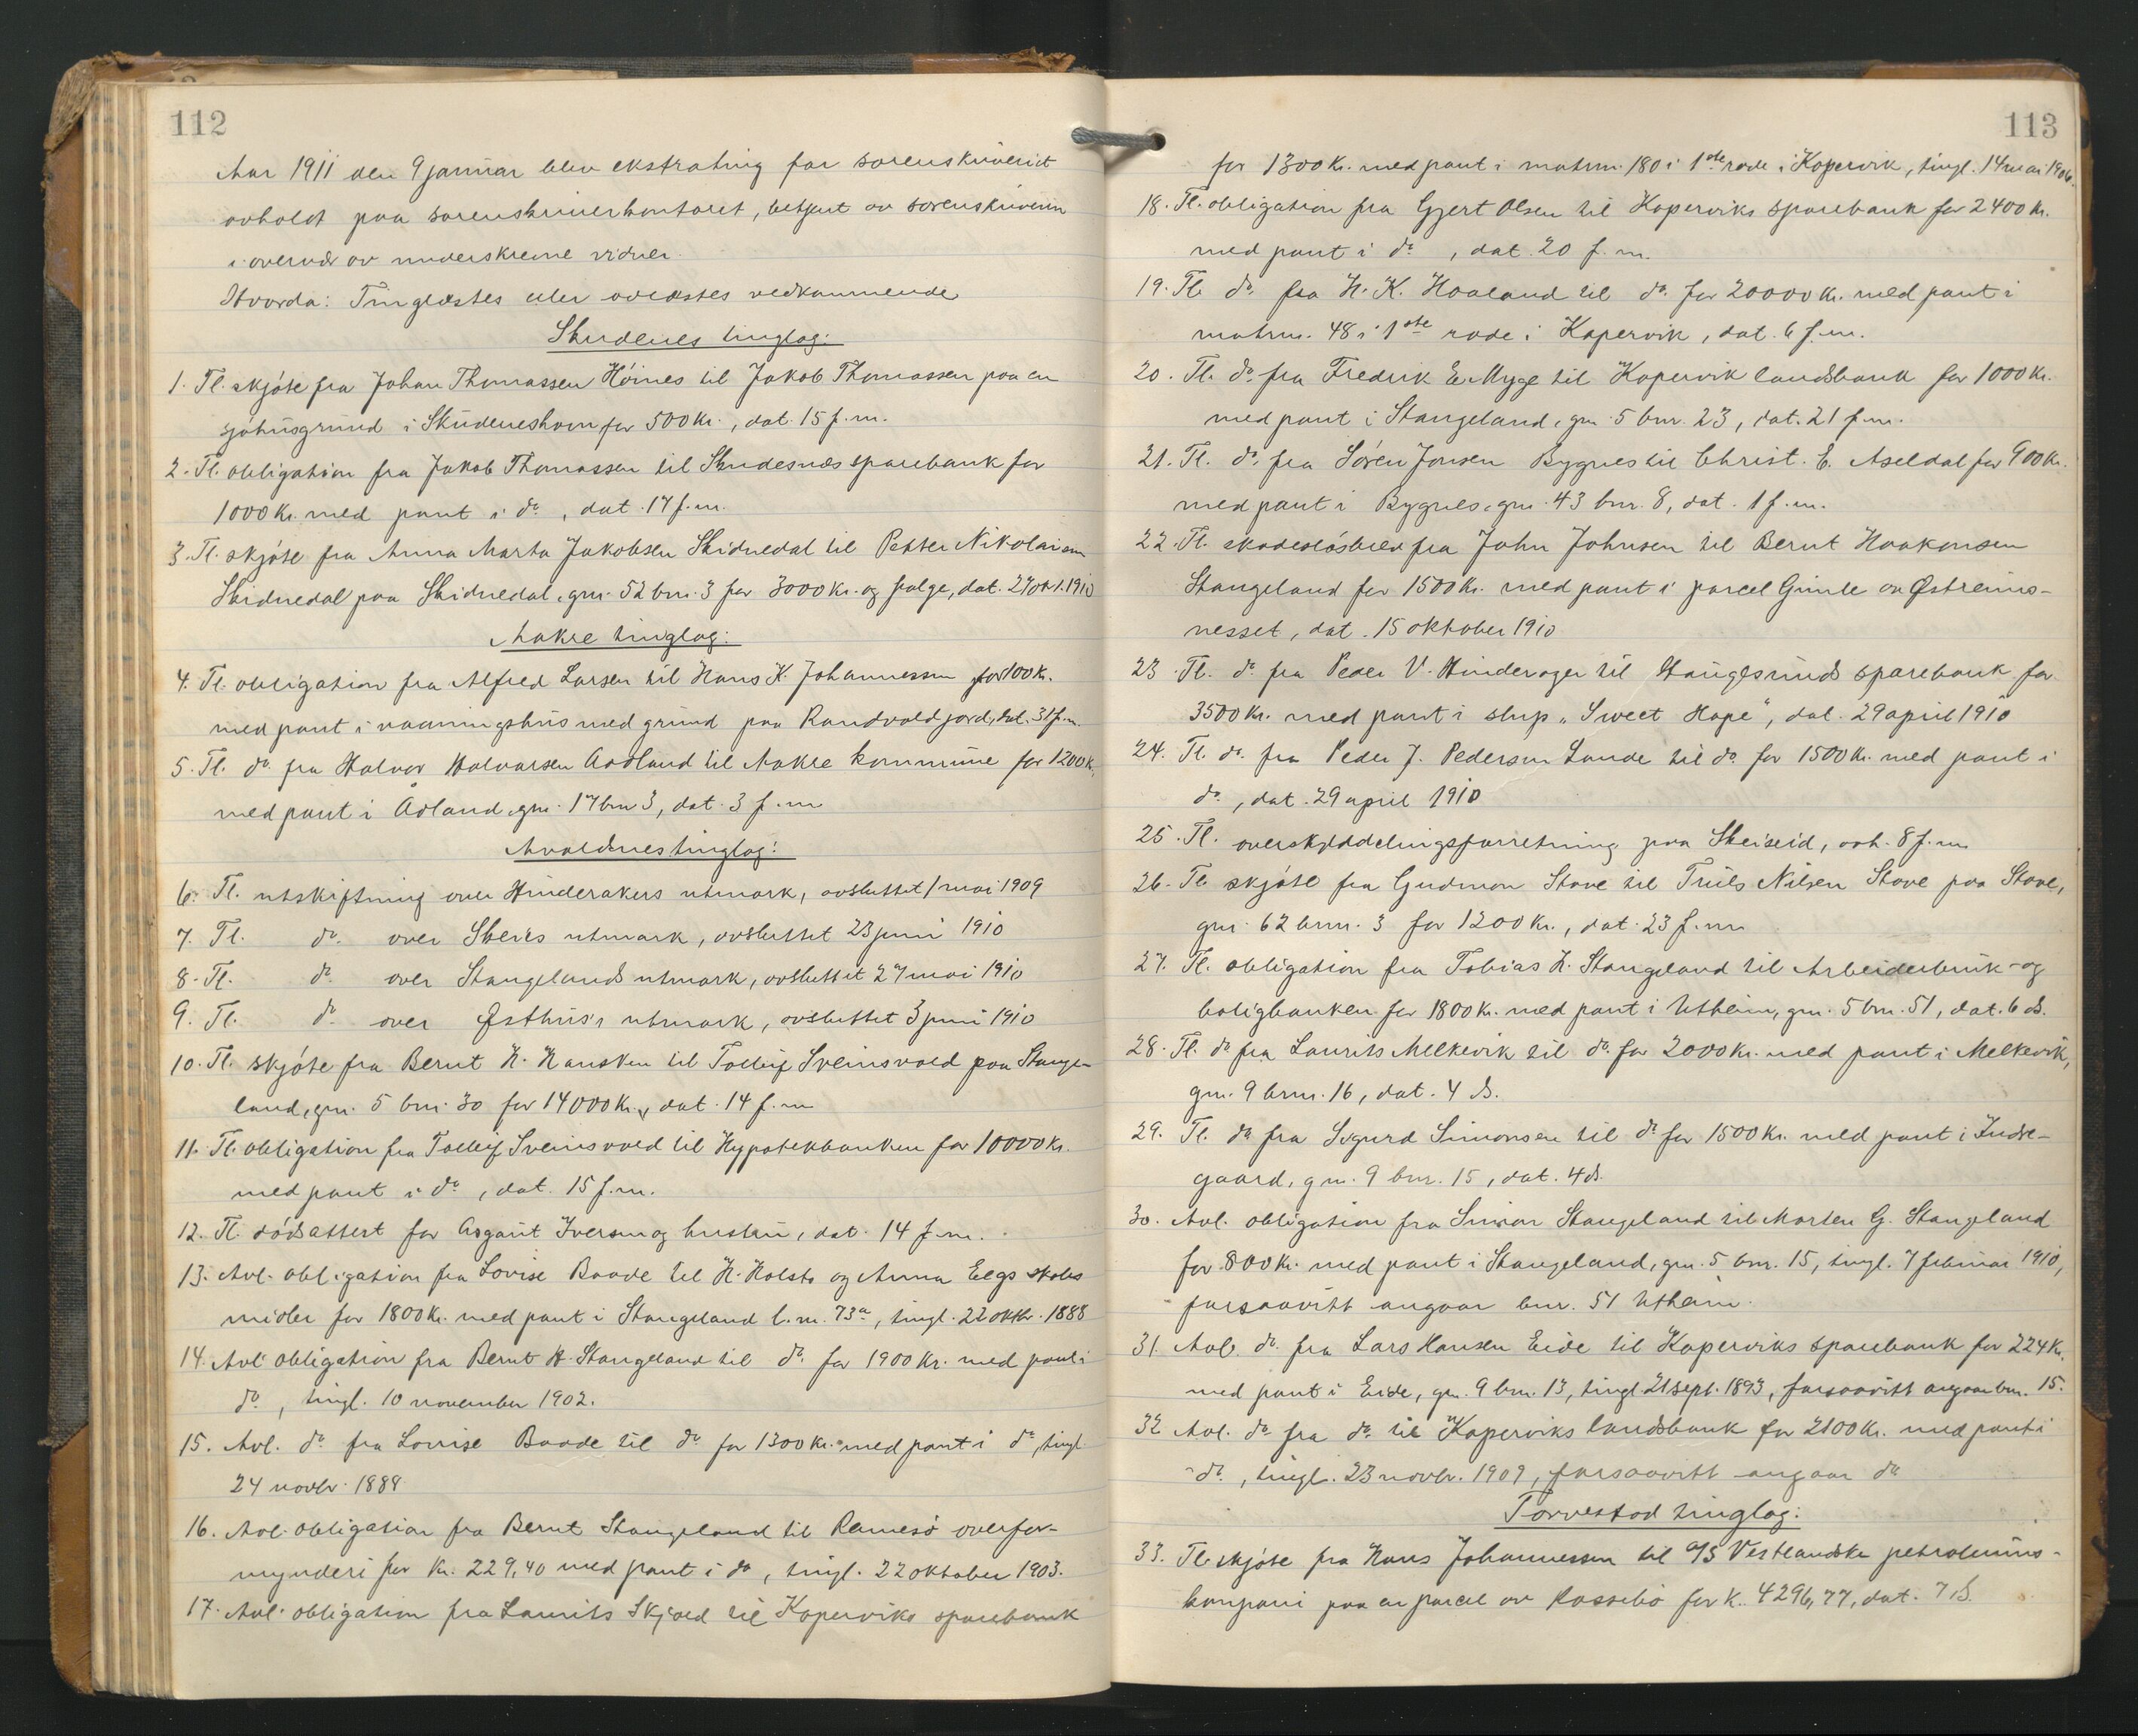 112
Aar 1911 den 9 januar blev ekstrating for sorenskriveriet
avholdt paa sorenskriverkontoret, betjent av sorenskriveren
i overvær av underskrevne vidner.
Hvorda: Tinglæstes eller avlæstes vedkommende
Skudenes tinglag:
1. Tl. skjøte fra Johan Thomassen Høines til Jakob Thomassen paa en
sjøhusgrund i Skudeneshavn for 500 Kr., dat. 15 f.m.
2. Tl. obligation fra Jakob Thomassen til Skudesnæs sparebank for
1000 Kr. med pant i do, dat. 17 f.m.
3. Tl. skjøte fra Anna Marta Jakobsen Skidnedal til Petter Nikolaisen
Skidnedal paa Skidnedal, gnr. 52 bnr. 3 for 3000 Kr. og følge, dat. 27 okt. 1910
Aakre tinglag:
4. Tl. obligation fra Alfred Larsen til Hans K. Johannessen for 100 Kr.
med pant i vaaningshus med grund paa Randvold jord, dat. 31 f.m.
5. Tl. do. fra Halvor Halvorsen Aadland til Aakre kommune for 1200 K.
med pant i Ådland, gnr. 17 bnr 3, dat. 3 f.m
Avaldsnes tinglag:
6. Tl. utskiftning over Hinderakers utmark, avsluttet 1 mai 1909
7. Tl. do. over Skeies utmark, avsluttet 23 juni 1910
8. Tl. do. over Stangelands utmark, avsluttet 27 mai 1910
9. Tl. do. over Østhus's utmark, avsluttet 3 juni 1910
10. Tl. skjøte fra Bernt H. Hansen til Tolleif Sveinsvold paa Stange-
land, gnr. 5 bnr. 30 for 14000 Kr., dat. 14 f.m
11. Tl. obligation fra Tolleif Sveinsvold til Hypotekbanken for 10000 Kr.
med pant i do, dat. 15 f.m.
12. Tl. dødsattest for Asgaut Iversen og hustru, dat. 14 f.m.
13. Avl. obligation fra Lovise Baade til H. Holsts og Anna Eegs skoles
midler for 1800 Kr. med pant i Stangeland l.nr. 73a, tingl. 22 oktbr. 1888
14. Avl. obligation fra Bernt H. Stangeland til do. for 1900 Kr. med pant i
do, tingl. 10 november 1902.
15. Avl. do. fra Lovise Baade til do for 1300 Kr. med pant i do, tingl.
24 novbr. 1888
16. Avl. obligation fra Bernt Stangeland til Rennesø overfor-
mynderi for Kr. 229,40 med pant i do, tingl. 22 oktober 1903.
17. Avl. obligation fra Laurits Skjold til Koperviks sparebank
113
for 1300 Kr. med pant i matrnr. 180 i 1ste rode i Kopervik, tingl. 14 mai 1906.
18. Tl. obligation fra Gjert Olsen til Koperviks sparebank for 2400 Kr.
med pant i do, dat. 20 f.m.
19. Tl. do. fra H. K. Haaland til do. for 20000 Kr. med pant i
matrnr. 48 i 1ste rode i Kopervik, dat. 6 f.m.
20. Tl. do. fra Fredrik E. Myge til Kopervik landsbank for 1000 Kr.
med pant i Stangeland, gnr 5 bnr. 23, dat. 21 f.m.
21. Tl. do. fra Søren Jonsen Bygnes til Christ. E. Aseldal for 900 Kr.
med pant i Bygnes, gnr. 43 bnr. 8, dat. 1 f.m.
22. Tl. skadesløsbrev fra John Johnsen til Bernt Haakonsen
Stangeland for 1500 Kr. med pant i parcel Gimle av Østreims-
nesset, dat. 15 oktober 1910
23. Tl. do. fra Peder V. Hinderager til Haugesunds sparebank for
3500 Kr. med pant i slup "Sweet Hope", dat. 29 april 1910
24. Tl. do. fra Peder J. Pedersen Lande til do. for 1500 Kr. med pant i
do, dat. 29 april 1910
25. Tl. overskylddelingsforretning paa Skeiseid, avh. 8 f.m
26. Tl. skjøte fra Gudmon Stave til Truls Nilsen Stave paa Stave,
gnr. 62 bnr. 3 for 1200 Kr., dat. 23 f.m
27. Tl. obligation fra Tobias H. Stangeland til Arbeiderbruk- og
boligbanken for 1800 Kr. med pant i Utheim, gnr. 5 bnr. 51, dat. 6 ds.
28. Tl. do fra Laurits Melkevik til do. for 2000 Kr. med pant i Melkevik,
gnr. 9 bnr. 16, dat. 4 ds.
29. Tl. do fra Sigurd Simonsen til do for 1500 Kr. med pant i Indre-
gaard, gnr. 9 bnr. 15, dat. 4 ds.
30. Avl. obligation fra Simon Stangeland til Morten G. Stangeland
for 800 Kr. med pant i Stangeland, gnr. 5 bnr. 15, tingl. 7 februar 1910,
forsaavitt angaar bnr. 51 Utheim.
31. Avl. do. fra Lars Hansen Eide til Koperviks sparebank for 224 Kr.
med pant i Eide, gnr. 9 bnr. 13, tingl. 21 sept. 1893, forsaavitt angaar bnr. 15.
32 Avl. do fra do. til Koperviks landsbank for 2100 Kr. med pant i
do, tingl. 23 novbr. 1909, forsaavitt angaar do
Torvestad tinglag:
33. Tl. skjøte fra Hans Johannessen til A/S Vestlandske petroleums-
kompani paa en parcel av Rossebø for K. 4296,77, dat. 7 ds.